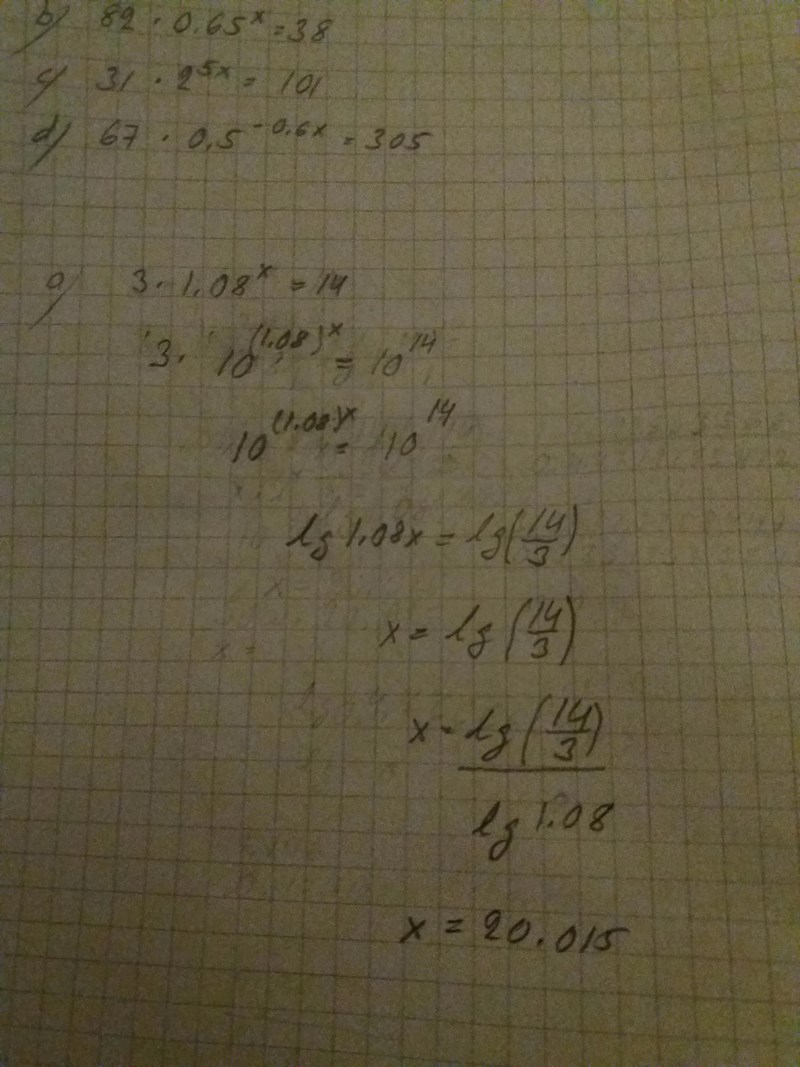 b) 82 · 0.65^x = 38
c) 31 · 2^5x = 101
d) 67 · 0,5^-0.6x = 305
a) 3 · 1.08^x = 14
3 · 10^(1.08)^x = 10^14
10^(1.08)^x = 10^14
lg 1.08x = lg(14/3)
x = lg(14/3)
x = lg(14/3)
lg 1.08
x = 20.015